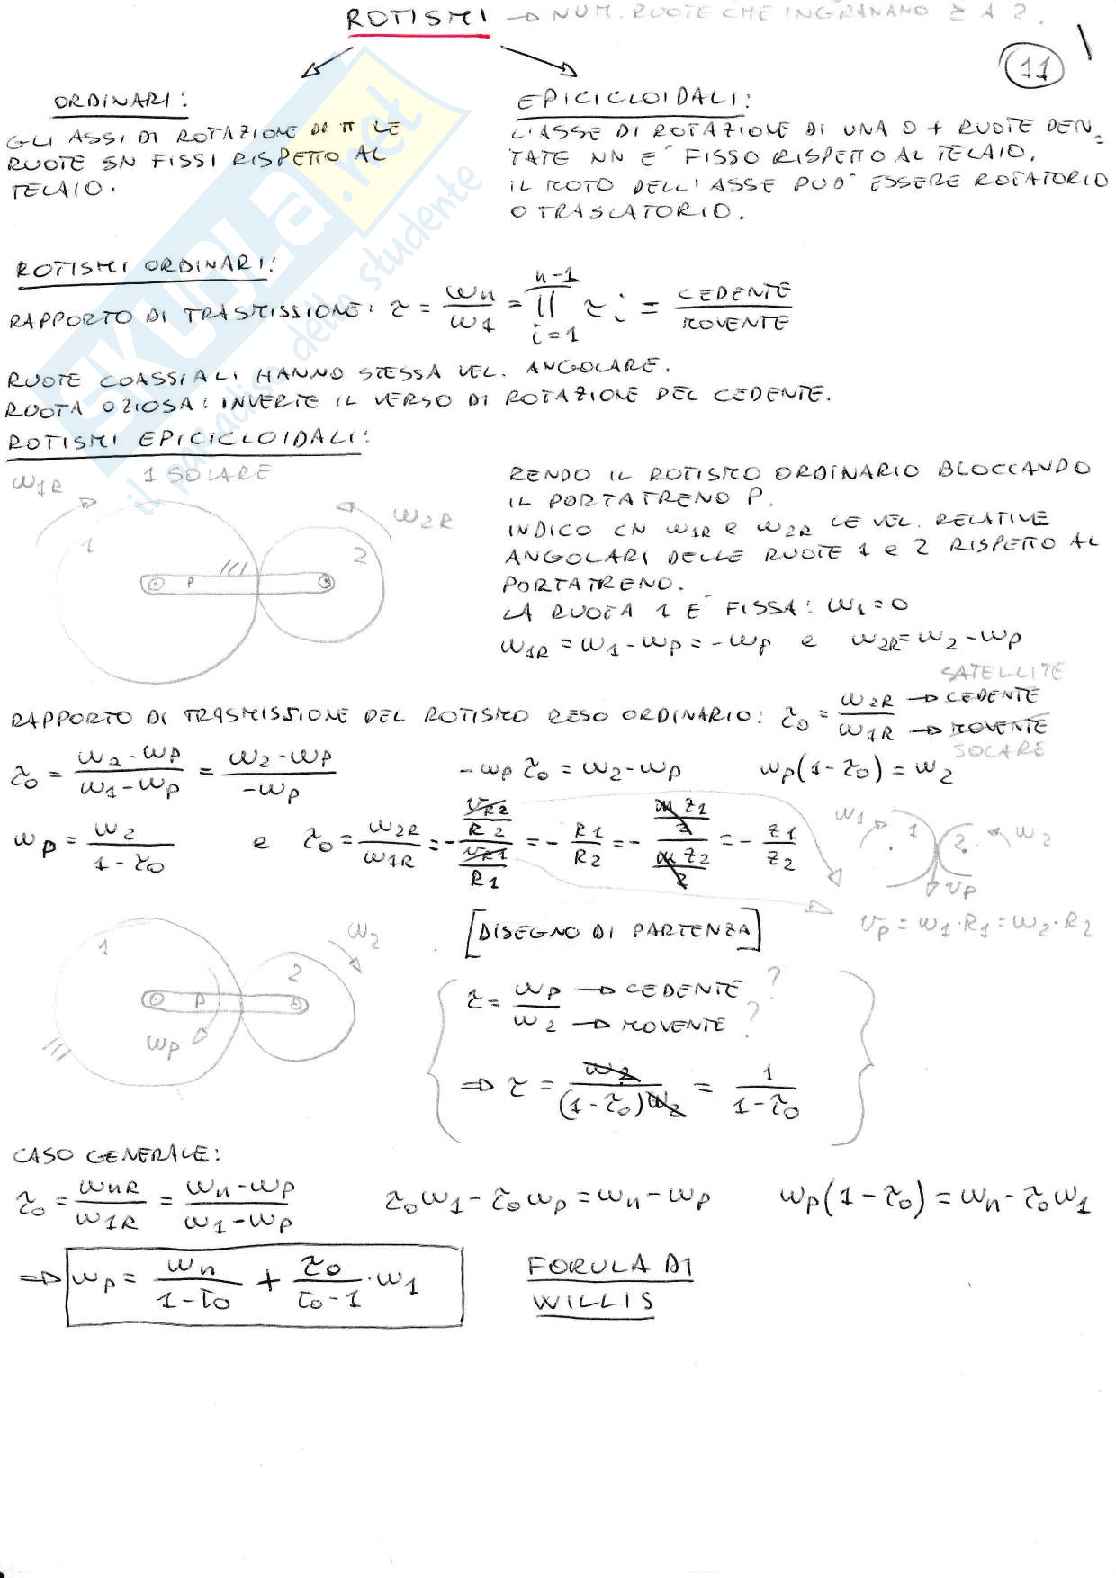 ROTISMI → NUM. RUOTE CHE INGRANANO ≥ A 2.
11
ORDINARI:
GLI ASSI DI ROTAZIONE DI π LE
RUOTE SN FISSI RISPETTO AL
TELAIO.
EPICICLOIDALI:
L'ASSE DI ROTAZIONE DI UNA O + RUOTE DEN=
TATE NN E' FISSO RISPETTO AL TELAIO.
IL MOTO DELL'ASSE PUO' ESSERE ROTATORIO
O TRASLATORIO.
SKUOLA.net
il paradiso dello studente
ROTISMI ORDINARI:
RAPPORTO DI TRASMISSIONE: τ = ωn/ω1 = ∏ i=1 n-1 τi = CEDENTE/MOVENTE
RUOTE COASSIALI HANNO STESSA VEL. ANGOLARE.
RUOTA OZIOSA: INVERTE IL VERSO DI ROTAZIONE DEL CEDENTE.
ROTISMI EPICICLOIDALI:
1 SOLARE
ω1R
ω2R
1
2
P
RENDO IL ROTISMO ORDINARIO BLOCCANDO
IL PORTATRENO P.
INDICO CN ω1R e ω2R LE VEL. RELATIVE
ANGOLARI DELLE RUOTE 1 e 2 RISPETTO AL
PORTATRENO.
LA RUOTA 1 E' FISSA: ω1=0
ω1R = ω1-ωP = -ωP e ω2R = ω2-ωP
SATELLITE
RAPPORTO DI TRASMISSIONE DEL ROTISMO RESO ORDINARIO: τ0 = ω2R/ω1R → CEDENTE → MOVENTE
SOLARE
τ0 = (ω2-ωP)/(ω1-ωP) = (ω2-ωP)/(-ωP) -ωP τ0 = ω2-ωP ωP(1-τ0) = ω2
ωP = ω2/(1-τ0) e τ0 = ω2R/ω1R = -(VR2/R2)/(VR1/R1) = -R1/R2 = -(m z1/2)/(m z2/2) = -z1/z2
ω1
1
2
ω2
vP
vP = ω1·R1 = ω2·R2
[DISEGNO DI PARTENZA]
1
2
ω2
P
ωP
τ = ωP/ω2 → CEDENTE ? → MOVENTE ?
⇒ τ = ω2/((1-τ0)ω2) = 1/(1-τ0)
CASO GENERALE:
τ0 = ωnR/ω1R = (ωn-ωP)/(ω1-ωP) τ0ω1-τ0ωP = ωn-ωP ωP(1-τ0) = ωn-τ0ω1
⇒ ωP = ωn/(1-τ0) + τ0/(τ0-1)·ω1
FORULA DI
WILLIS